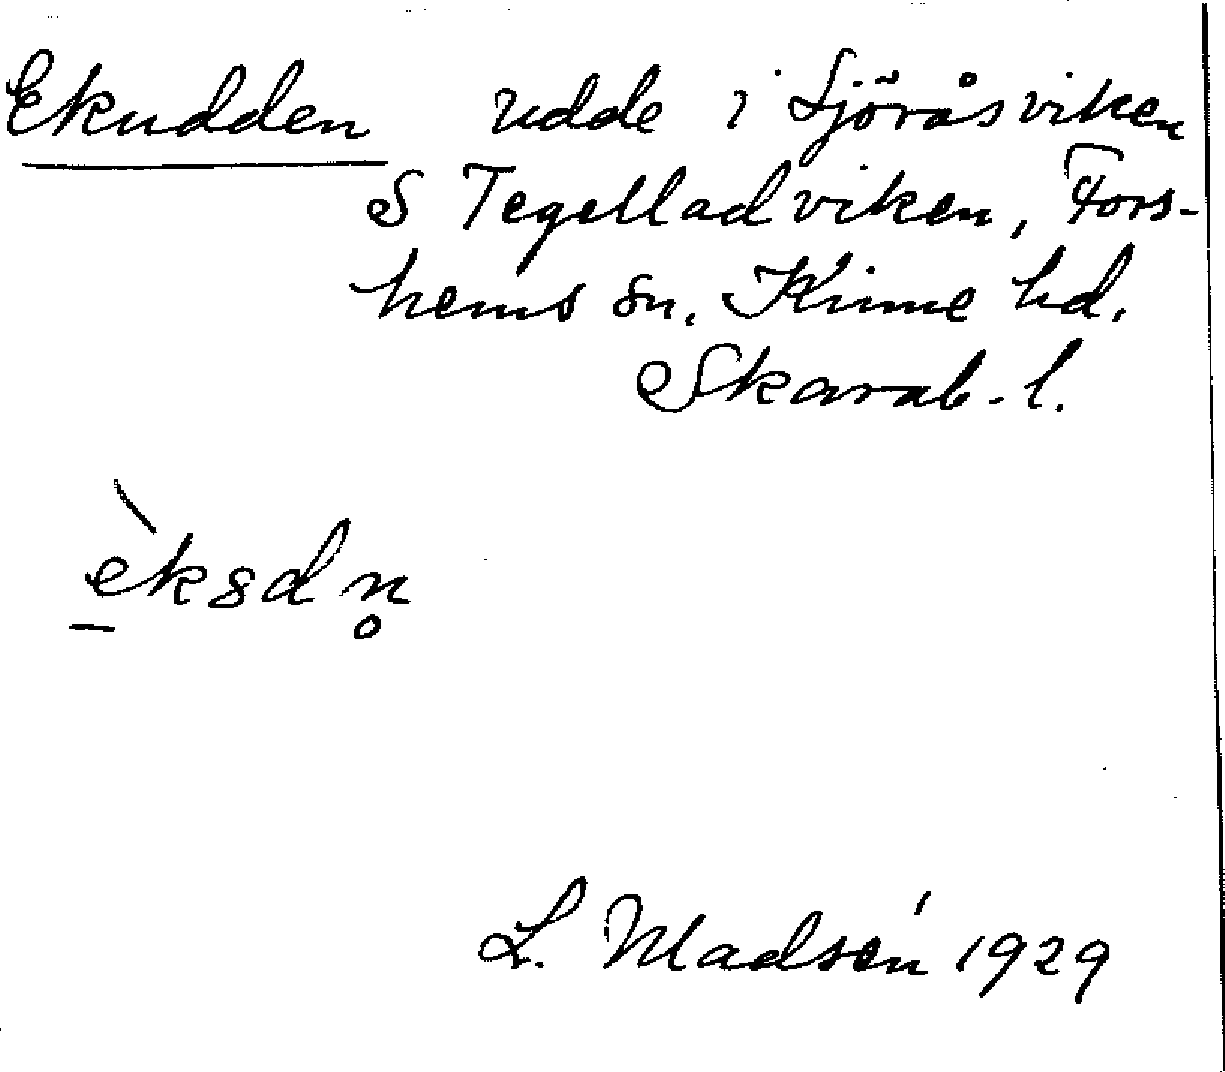 Ekudden udde i Sjöråsviken
S Tegelladviken, Fors-
hems sn. Kinne hd.
Skarab. l.
L. Madsén 1929